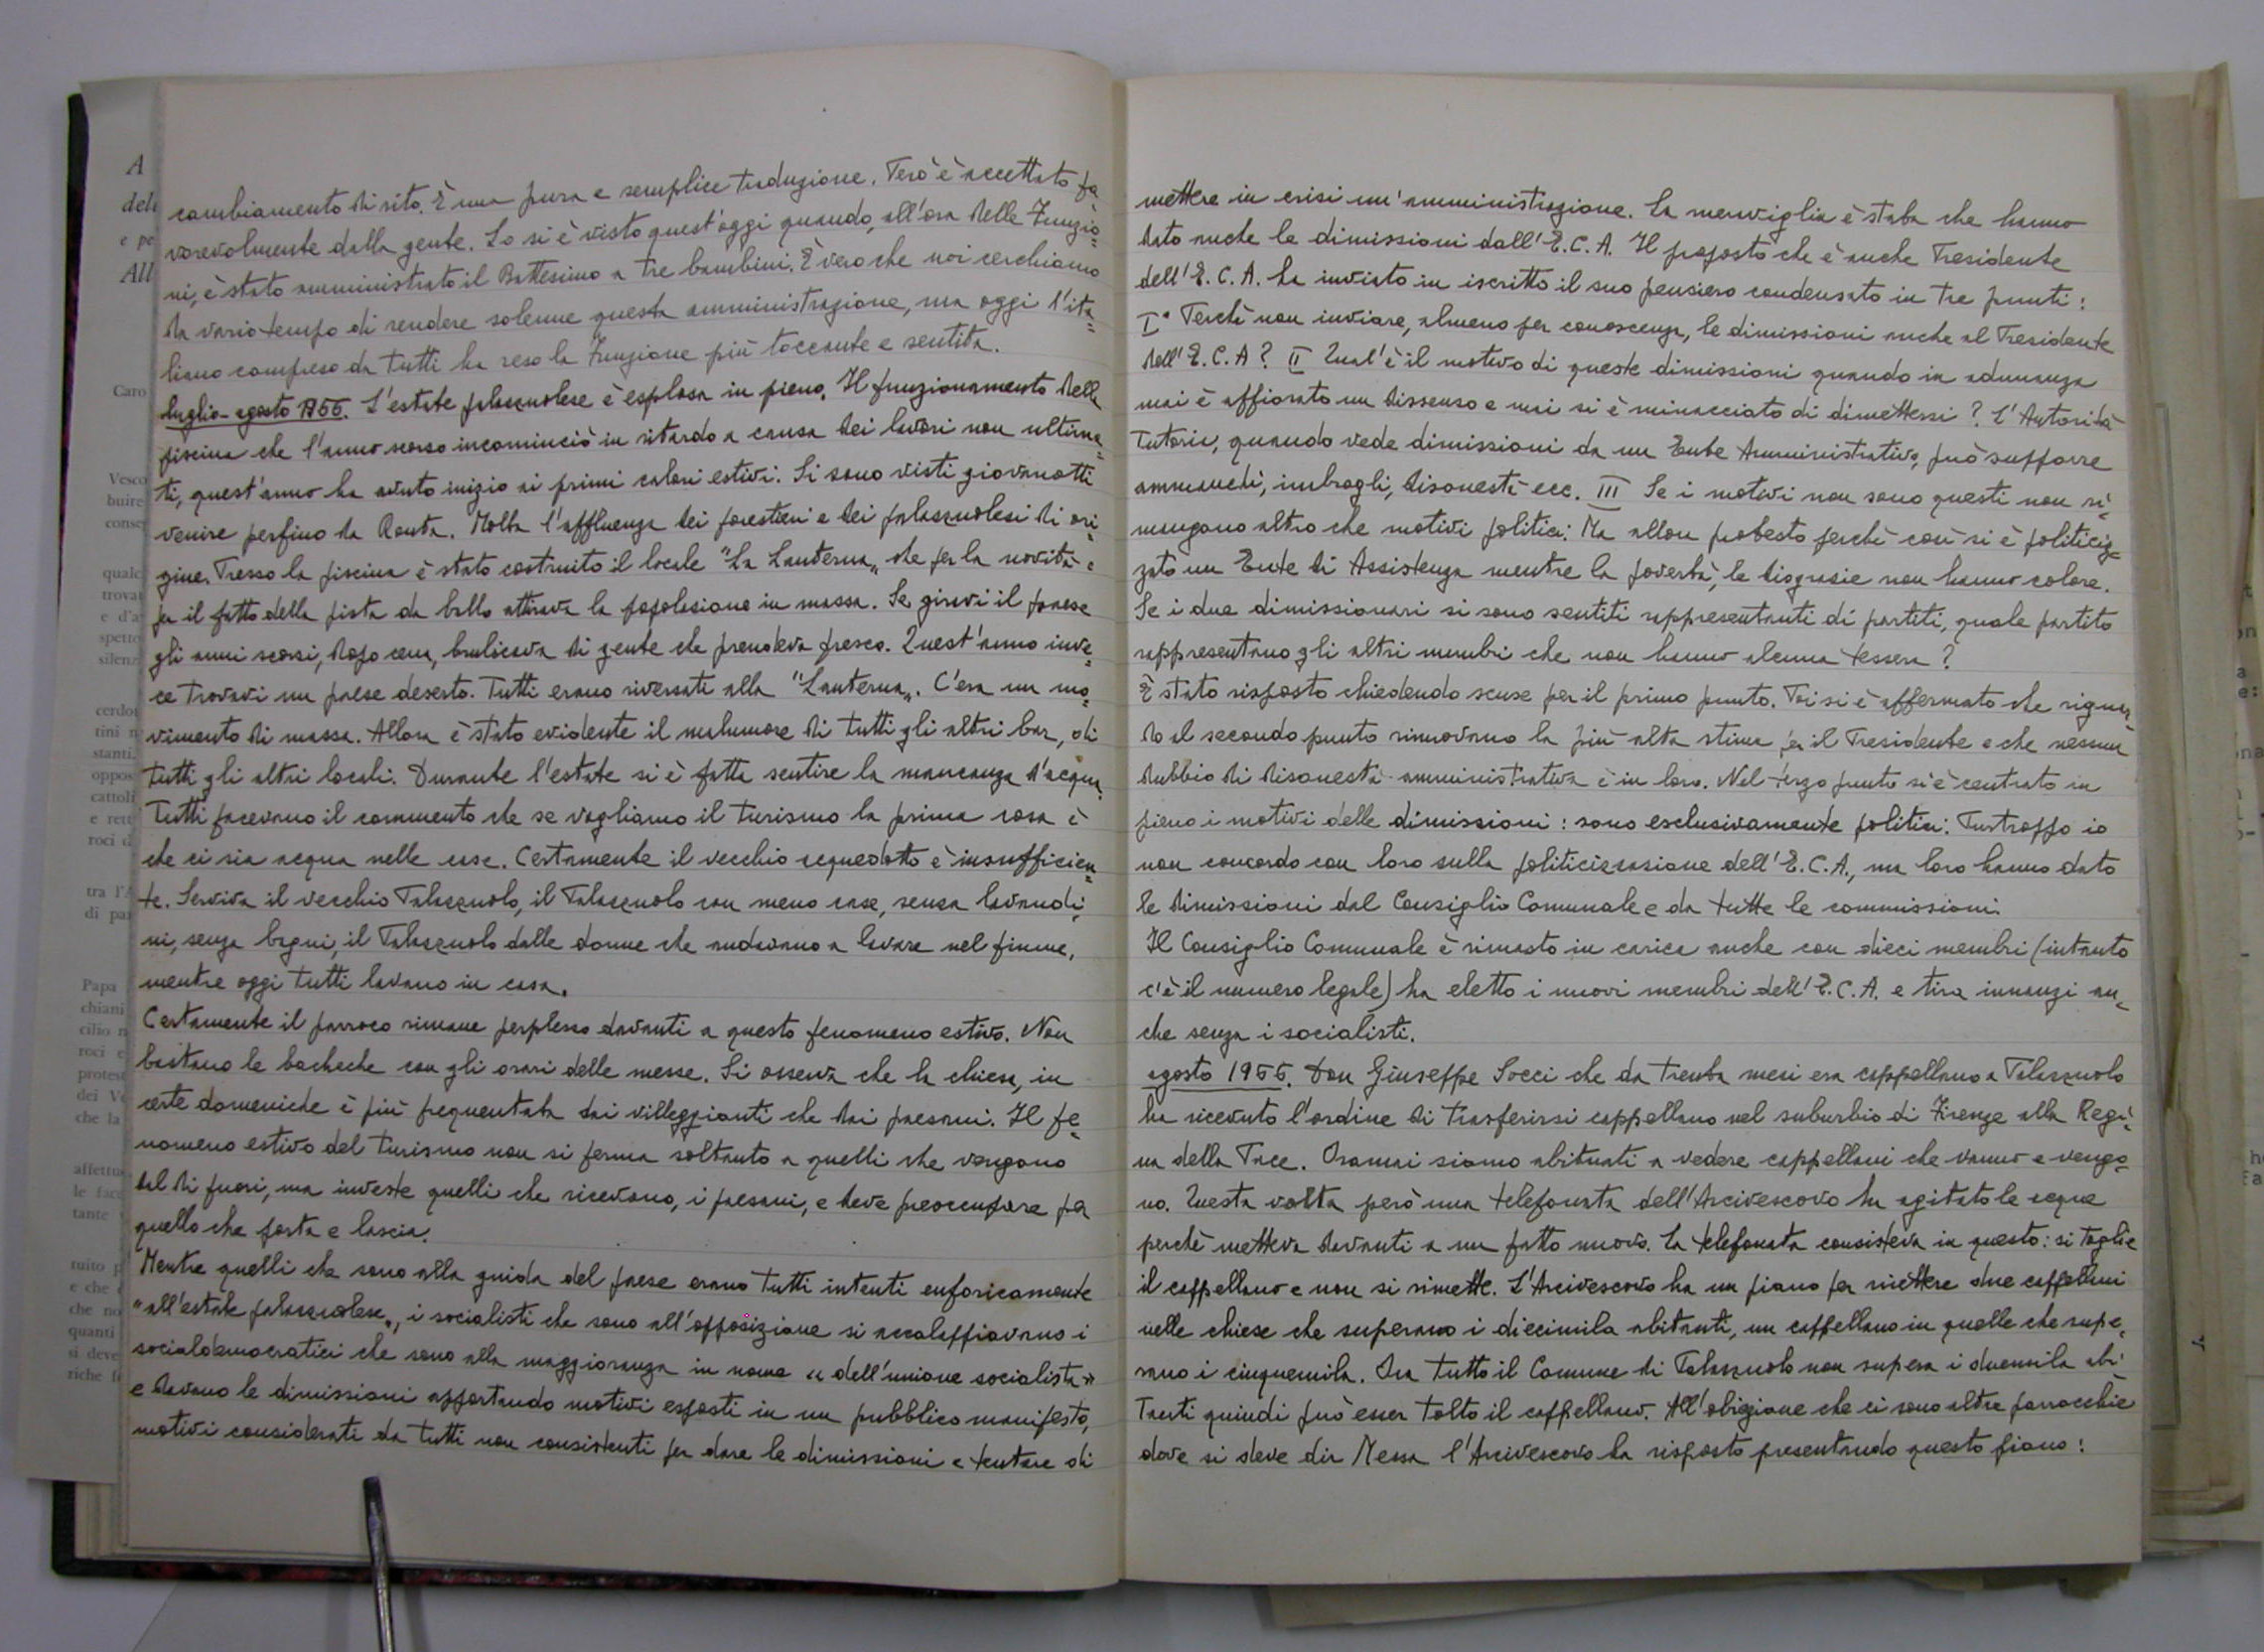 cambiamento di rito. È una pura e semplice traduzione. Però è accettato fa=
vorevolmente dalla gente. Lo si è visto quest'oggi quando, all'ora delle Funzio=
ni, è stato amministrato il Battesimo a tre bambini. È vero che noi cerchiamo
da vario tempo di rendere solenne questa amministrazione, ma oggi l'ita=
liano compreso da tutti ha reso la Funzione più toccante e sentita.
luglio-agosto 1966. L'estate palazzuolese è esplosa in pieno. Il funzionamento della
piscina che l'anno scorso incominciò in ritardo a causa dei lavori non ultima=
ti, quest'anno ha avuto inizio ai primi calori estivi. Si sono visti giovanotti
venire perfino da Ronta. Molta l'affluenza dei forestieri e dei palazzuolesi di ori=
gine. Presso la piscina è stato costruito il locale "La Lanterna„ che per la novità e
per il fatto della pista da ballo attirava la popolazione in massa. Se giravi il paese
gli anni scorsi, dopo cena, brulicava di gente che prendeva fresco. Quest'anno inve=
ce trovavi un paese deserto. Tutti erano riversati alla "Lanterna„. C'era un mo=
vimento di massa. Allora è stato evidente il malumore di tutti gli altri bar, di
tutti gli altri locali. Durante l'estate si è fatta sentire la mancanza d'acqua.
Tutti facevano il commento che se vogliamo il turismo la prima cosa è
che ci sia acqua nelle case. Certamente il vecchio acquedotto è insufficien=
te. Serviva il vecchio Palazzuolo, il Palazzuolo con meno case, senza lavandi=
ni, senza bagni, il Palazzuolo dalle donne che andavano a lavare nel fiume,
mentre oggi tutti lavano in casa.
Certamente il parroco rimane perplesso davanti a questo fenomeno estivo. Non
bastano le bacheche con gli orari delle messe. Si osserva che la chiesa, in
certe domeniche è più frequentata dai villeggianti che dai paesani. Il fe=
nomeno estivo del turismo non si ferma soltanto a quelli che vengono
dal di fuori, ma investe quelli che ricevono, i paesani, e deve preoccupare per
quello che porta e lascia.
Mentre quelli che sono alla guida del paese erano tutti intenti euforicamente
"all'estate palazzuolese„, i socialisti che sono all'opposizione si accalappiavano i
socialdemocratici che sono alla maggioranza in nome "dell'unione socialista"
e davano le dimissioni apportando motivi esposti in un pubblico manifesto,
motivi considerati da tutti non consistenti per dare le dimissioni e tentare di
mettere in crisi un'amministrazione. La meraviglia è stata che hanno
dato anche le dimissioni dall'E.C.A. Il proposto che è anche Presidente
dell'E.C.A. ha inviato in iscritto il suo pensiero condensato in tre punti:
I° Perchè non inviare, almeno per conoscenza, le dimissioni anche al Presidente
dell'E.C.A? II Qual'è il motivo di queste dimissioni quando in adunanza
mai è affiorato un dissenso e mai si è minacciato di dimettersi? L'Autorità
Tutoria, quando vede dimissioni da un Ente Amministrativo, può supporre
ammanchi, imbrogli, disonestà ecc. III Se i motivi non sono questi non ri=
mangono altro che motivi politici. Ma allora protesto perchè così si è politiciz=
zato un Ente di Assistenza mentre la povertà, le disgrazie non hanno colore.
Se i due dimissionari si sono sentiti rappresentanti di partiti, quale partito
rappresentano gli altri membri che non hanno alcuna tessera?
È stato risposto chiedendo scuse per il primo punto. Poi si è affermato che riguar=
do al secondo punto rinnovano la più alta stima per il Presidente e che nessun
dubbio di disonestà amministrativa è in loro. Nel terzo punto si è centrato in
pieno i motivi delle dimissioni: sono esclusivamente politici. Purtroppo io
non concordo con loro sulla politicizzazione dell'E.C.A., ma loro hanno dato
le dimissioni dal Consiglio Comunale e da tutte le commissioni.
Il Consiglio Comunale è rimasto in carica anche con dieci membri (intanto
c'è il numero legale) ha eletto i nuovi membri dell'E.C.A. e tira innanzi an=
che senza i socialisti.
agosto 1966. Don Giuseppe Socci che da trenta mesi era cappellano a Palazzuolo
ha ricevuto l'ordine di trasferirsi cappellano nel suburbio di Firenze alla Regi=
na della Pace. Oramai siamo abituati a vedere cappellani che vanno e vengo=
no. Questa volta però una telefonata dell'Arcivescovo ha agitato le acque
perchè metteva davanti a un fatto nuovo. La telefonata consisteva in questo: si toglie
il cappellano e non si rimette. L'Arcivescovo ha un piano per mettere due cappellani
nelle chiese che superano i diecimila abitanti, un cappellano in quelle che supe=
rano i cinquemila. Ora tutto il Comune di Palazzuolo non supera i duemila abi=
tanti quindi può esser tolto il cappellano. All'obiezione che ci sono altre parrocchie
dove si deve dir Messa l'Arcivescovo ha risposto presentando questo piano: